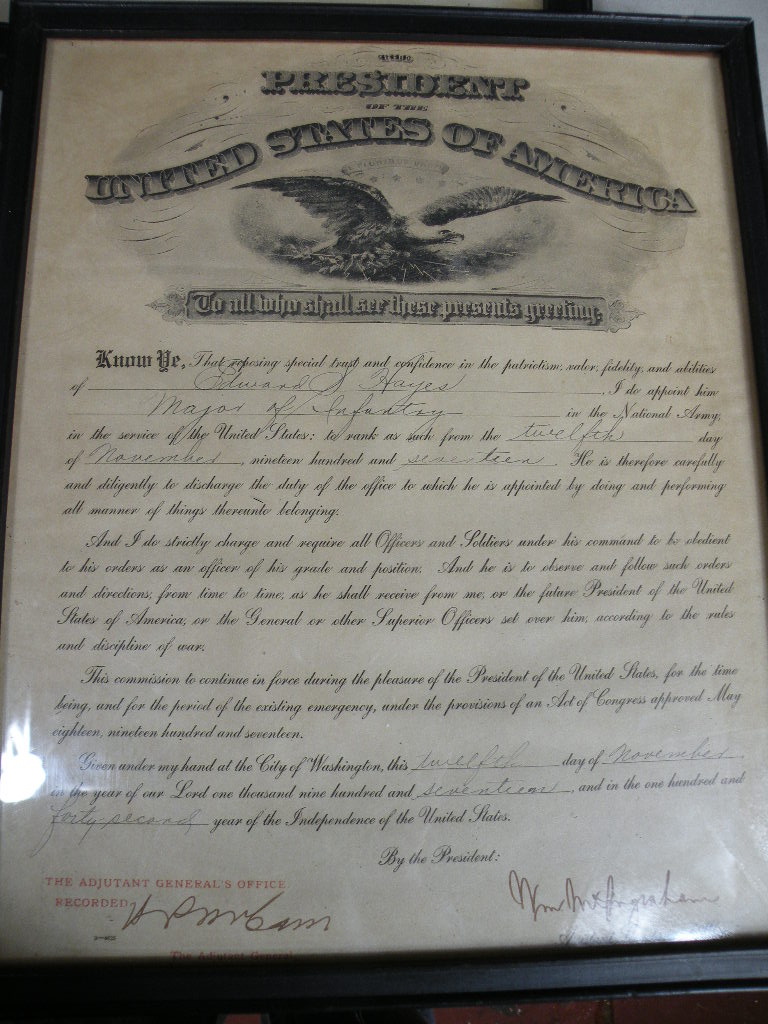 THE
PRESIDENT
OF THE
UNITED STATES OF AMERICA
To all who shall see these presents greeting:
Know Ye, That reposing special trust and confidence in the patriotism, valor, fidelity, and abilities
of Edward S Hayes, I do appoint him
Major of Infantry in the National Army,
in the service of the United States: to rank as such from the twelfth day
of November, nineteen hundred and seventeen. He is therefore carefully
and diligently to discharge the duty of the office to which he is appointed by doing and performing
all manner of things thereunto belonging.
And I do strictly charge and require all Officers and Soldiers under his command to be obedient
to his orders as an officer of his grade and position. And he is to observe and follow such orders
and directions, from time to time, as he shall receive from me, or the future President of the United
States of America, or the General or other Superior Officers set over him, according to the rules
and discipline of war.
This commission to continue in force during the pleasure of the President of the United States, for the time
being, and for the period of the existing emergency, under the provisions of an Act of Congress approved May
eighteen, nineteen hundred and seventeen.
Given under my hand at the City of Washington, this twelfth day of November,
in the year of our Lord one thousand nine hundred and seventeen, and in the one hundred and
forty-second year of the Independence of the United States.
By the President:
THE ADJUTANT GENERAL'S OFFICE
RECORDED H P McCain
Wm M Ingraham
The Adjutant General